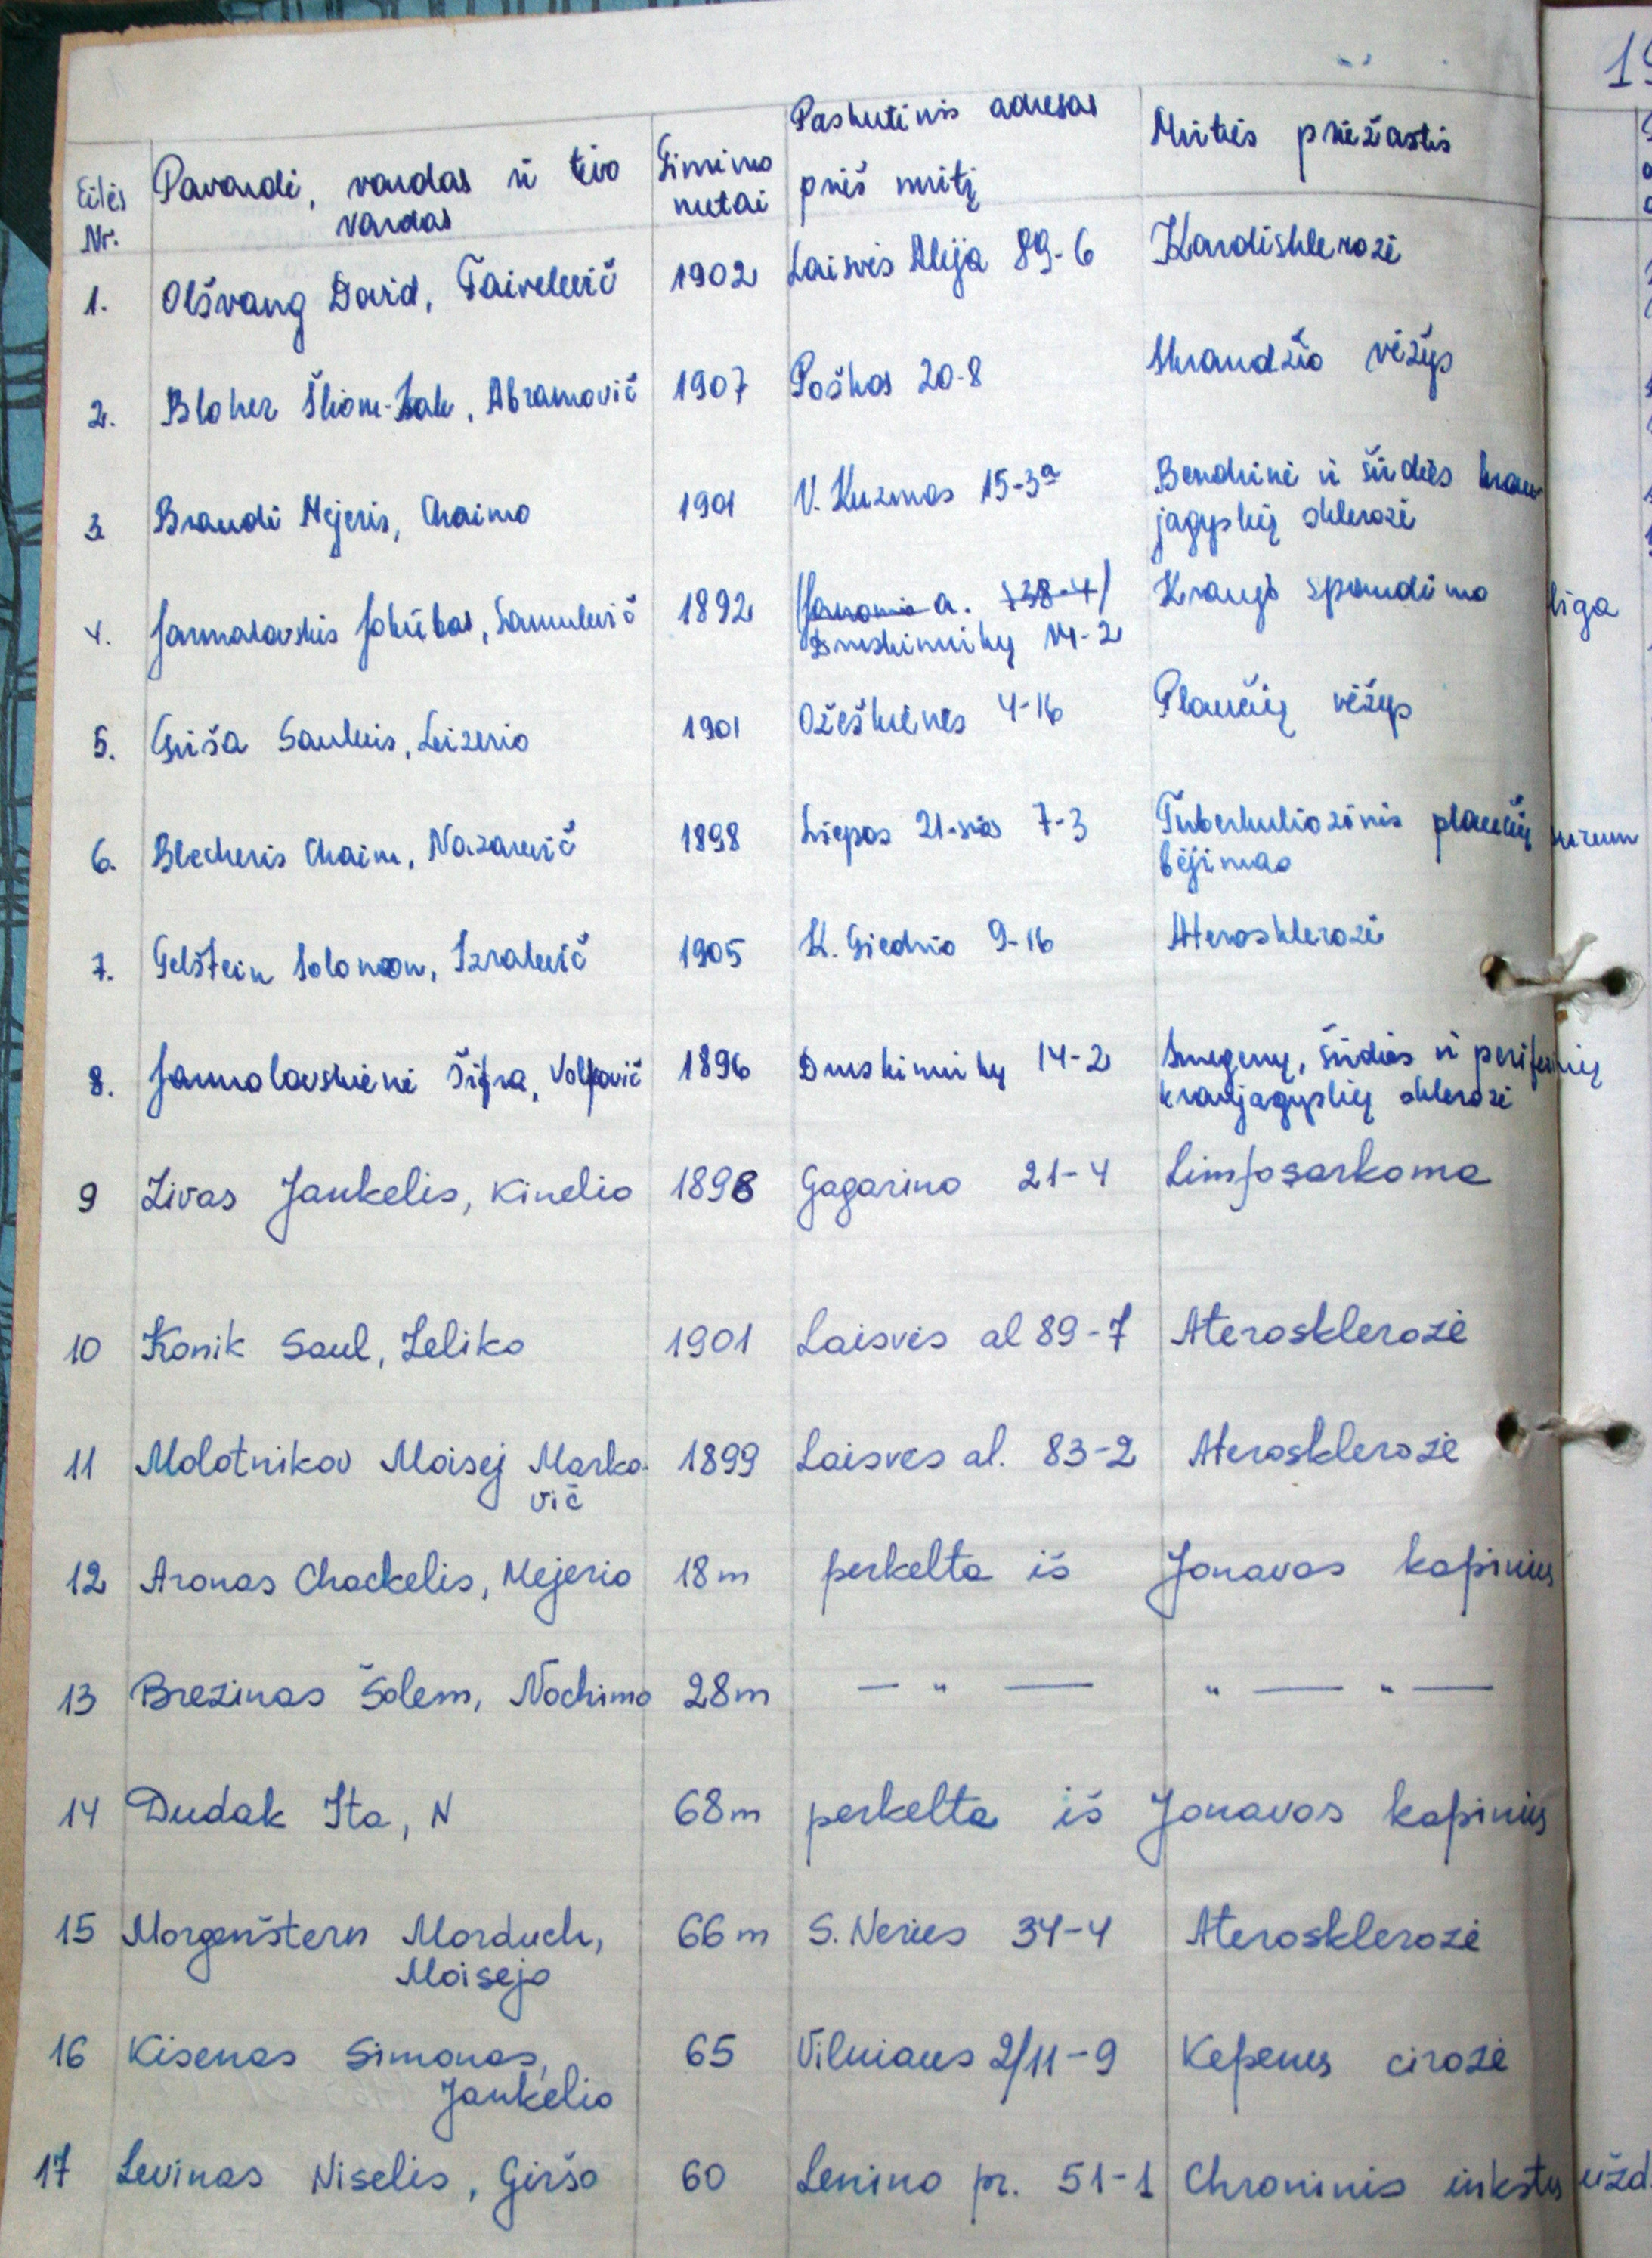 Eilės Nr. Pavardė, vardas ir tėvo vardas Gimimo metai Paskutinis adresas prieš mirtį Mirties priežastis
1. Olšvang David, Taivelevič 1902 Laisvės Alėja 89-6 Kardisklerozė
2. Bloher Šliom-, Abramovič 1907 Poškos 20-8 Skrandžio vėžys
3 Braudė Mejeris, Chaimo 1901 V. Kuzmos 15-3a Bendrinė ir širdies krau-
jagyslių sklerozė
4. Jarmalavskis Jokūbas, Samulevič 1892 a. 38-4/ Kraujo spaudimo liga
Druskininkų 14-2
5. Saulius, Leizerio 1901 Ožeškienės 4-16 Plaučių vėžys
6. Blecheris Chaim, Nazarevič 1898 Liepos 21-sios 7-3 Tuberkuliozinis plaučių
7. Gelštein Solomon, Izralevič 1905 K. Giedrio 9-16 Aterosklerozė
8. Jarmolovskienė Šifra, Volfovič 1896 Druskininkų 14-2 Smegenų, širdies ir periferinių
kraujagyslių sklerozė
9 Zivas Jankelis, Kinelio 1898 Gagarino 21-4 Limfosarkoma
10 Konik Saul, Zeliko 1901 Laisvės al 89-7 Aterosklerozė
11 Molotnikov Moisej Marko- 1899 Laisves al. 83-2 Aterosklerozė
vič
12 Aronas Chackelis, Mejerio 18m perkelta iš Jonavos kapinių
13 Brezinas Šolem, Nochimo 28m — " — " — " —
14 Dudak Ita, N 68m perkelta iš Jonavos kapinių
15 Morgenštern Morduch, 66m S. Neries 34-4 Aterosklerozė
Moisejo
16 Kisenas Simonas, 65 Vilniaus 2/11-9 Kepenų cirozė
Jankelio
17 Levinas Niselis, Giršo 60 Lenino pr. 51-1 Chroninis inkstų užd.